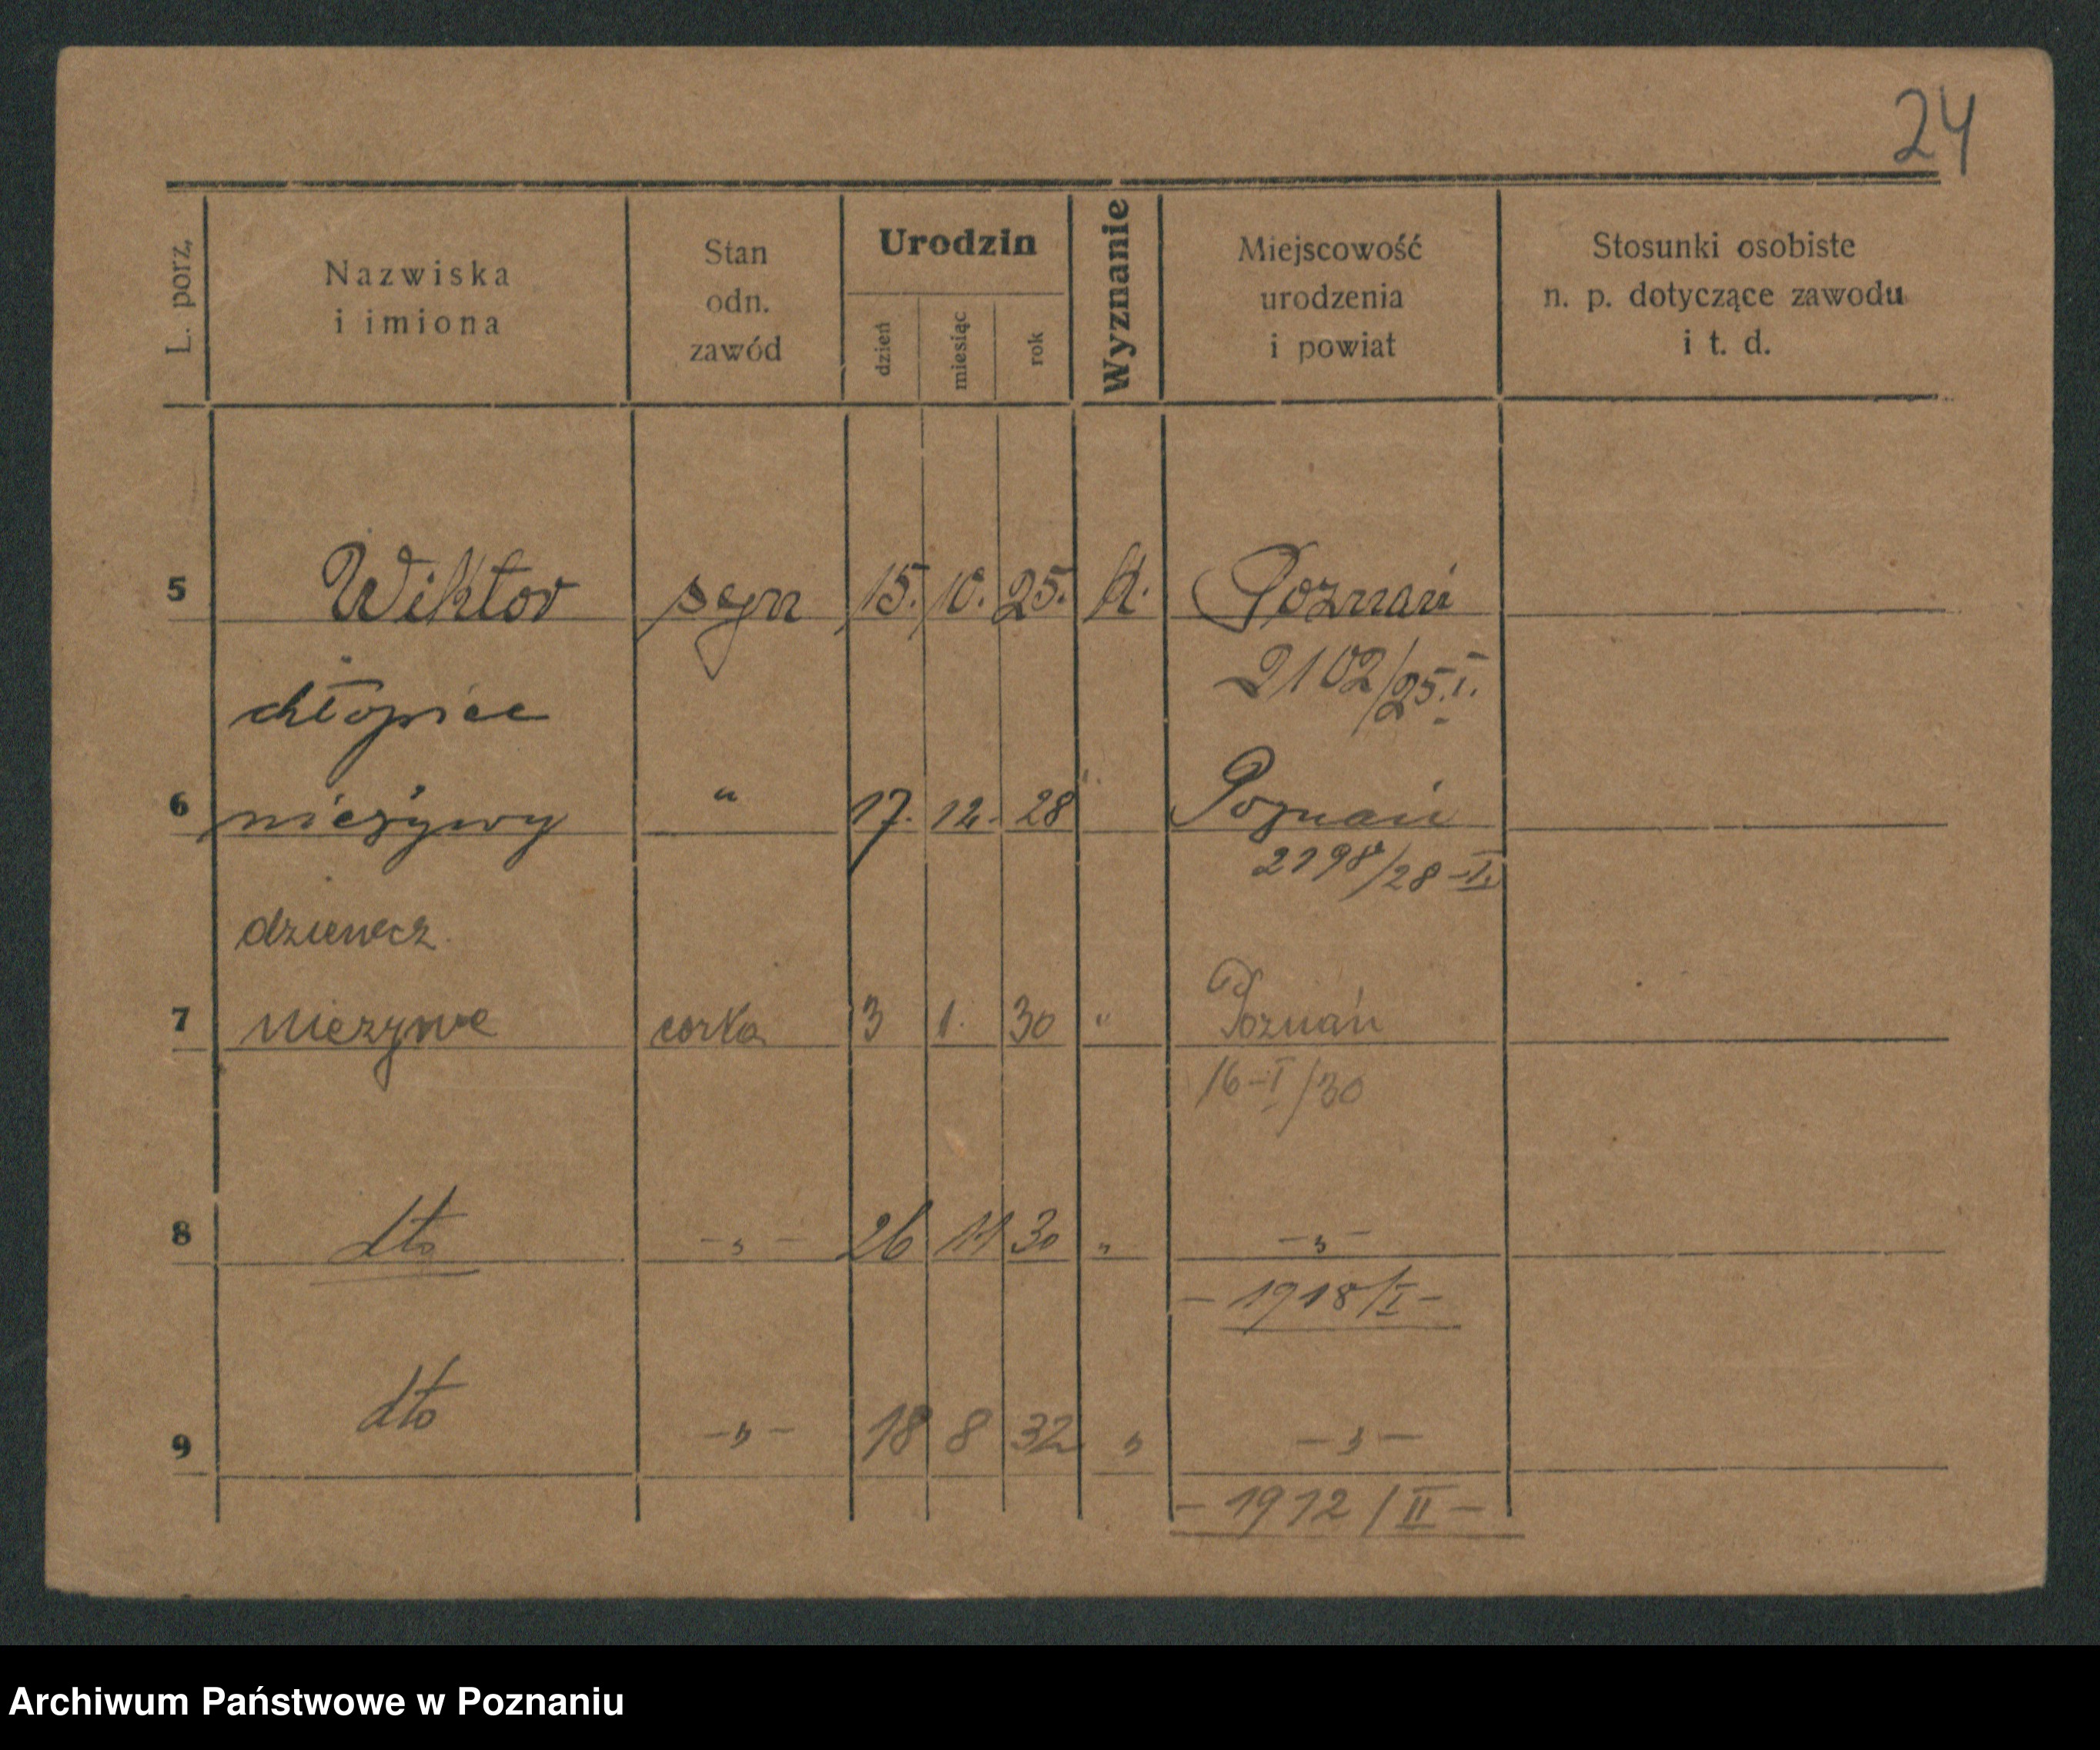 24
L. porz. Nazwiska i imiona Stan odn. zawód Urodzin dzień miesiąc rok Wyznanie Miejscowość urodzenia i powiat Stosunki osobiste n. p. dotyczące zawodu i t. d.
5 Wiktor syn 15. 10. 25. k. Poznań
2102/25.I.
chłopiec
6 nieżywy " 17. 12. 28 Poznań
2298/28 I.
dziewcz.
7 nieżywe corka 3 1. 30 " Poznań
16-I/30
8 dto -"- 26 11 30 " -"-
- 1918/I -
dto
9 -"- 18 8 32 " -"-
- 1912/II -
Archiwum Państwowe w Poznaniu